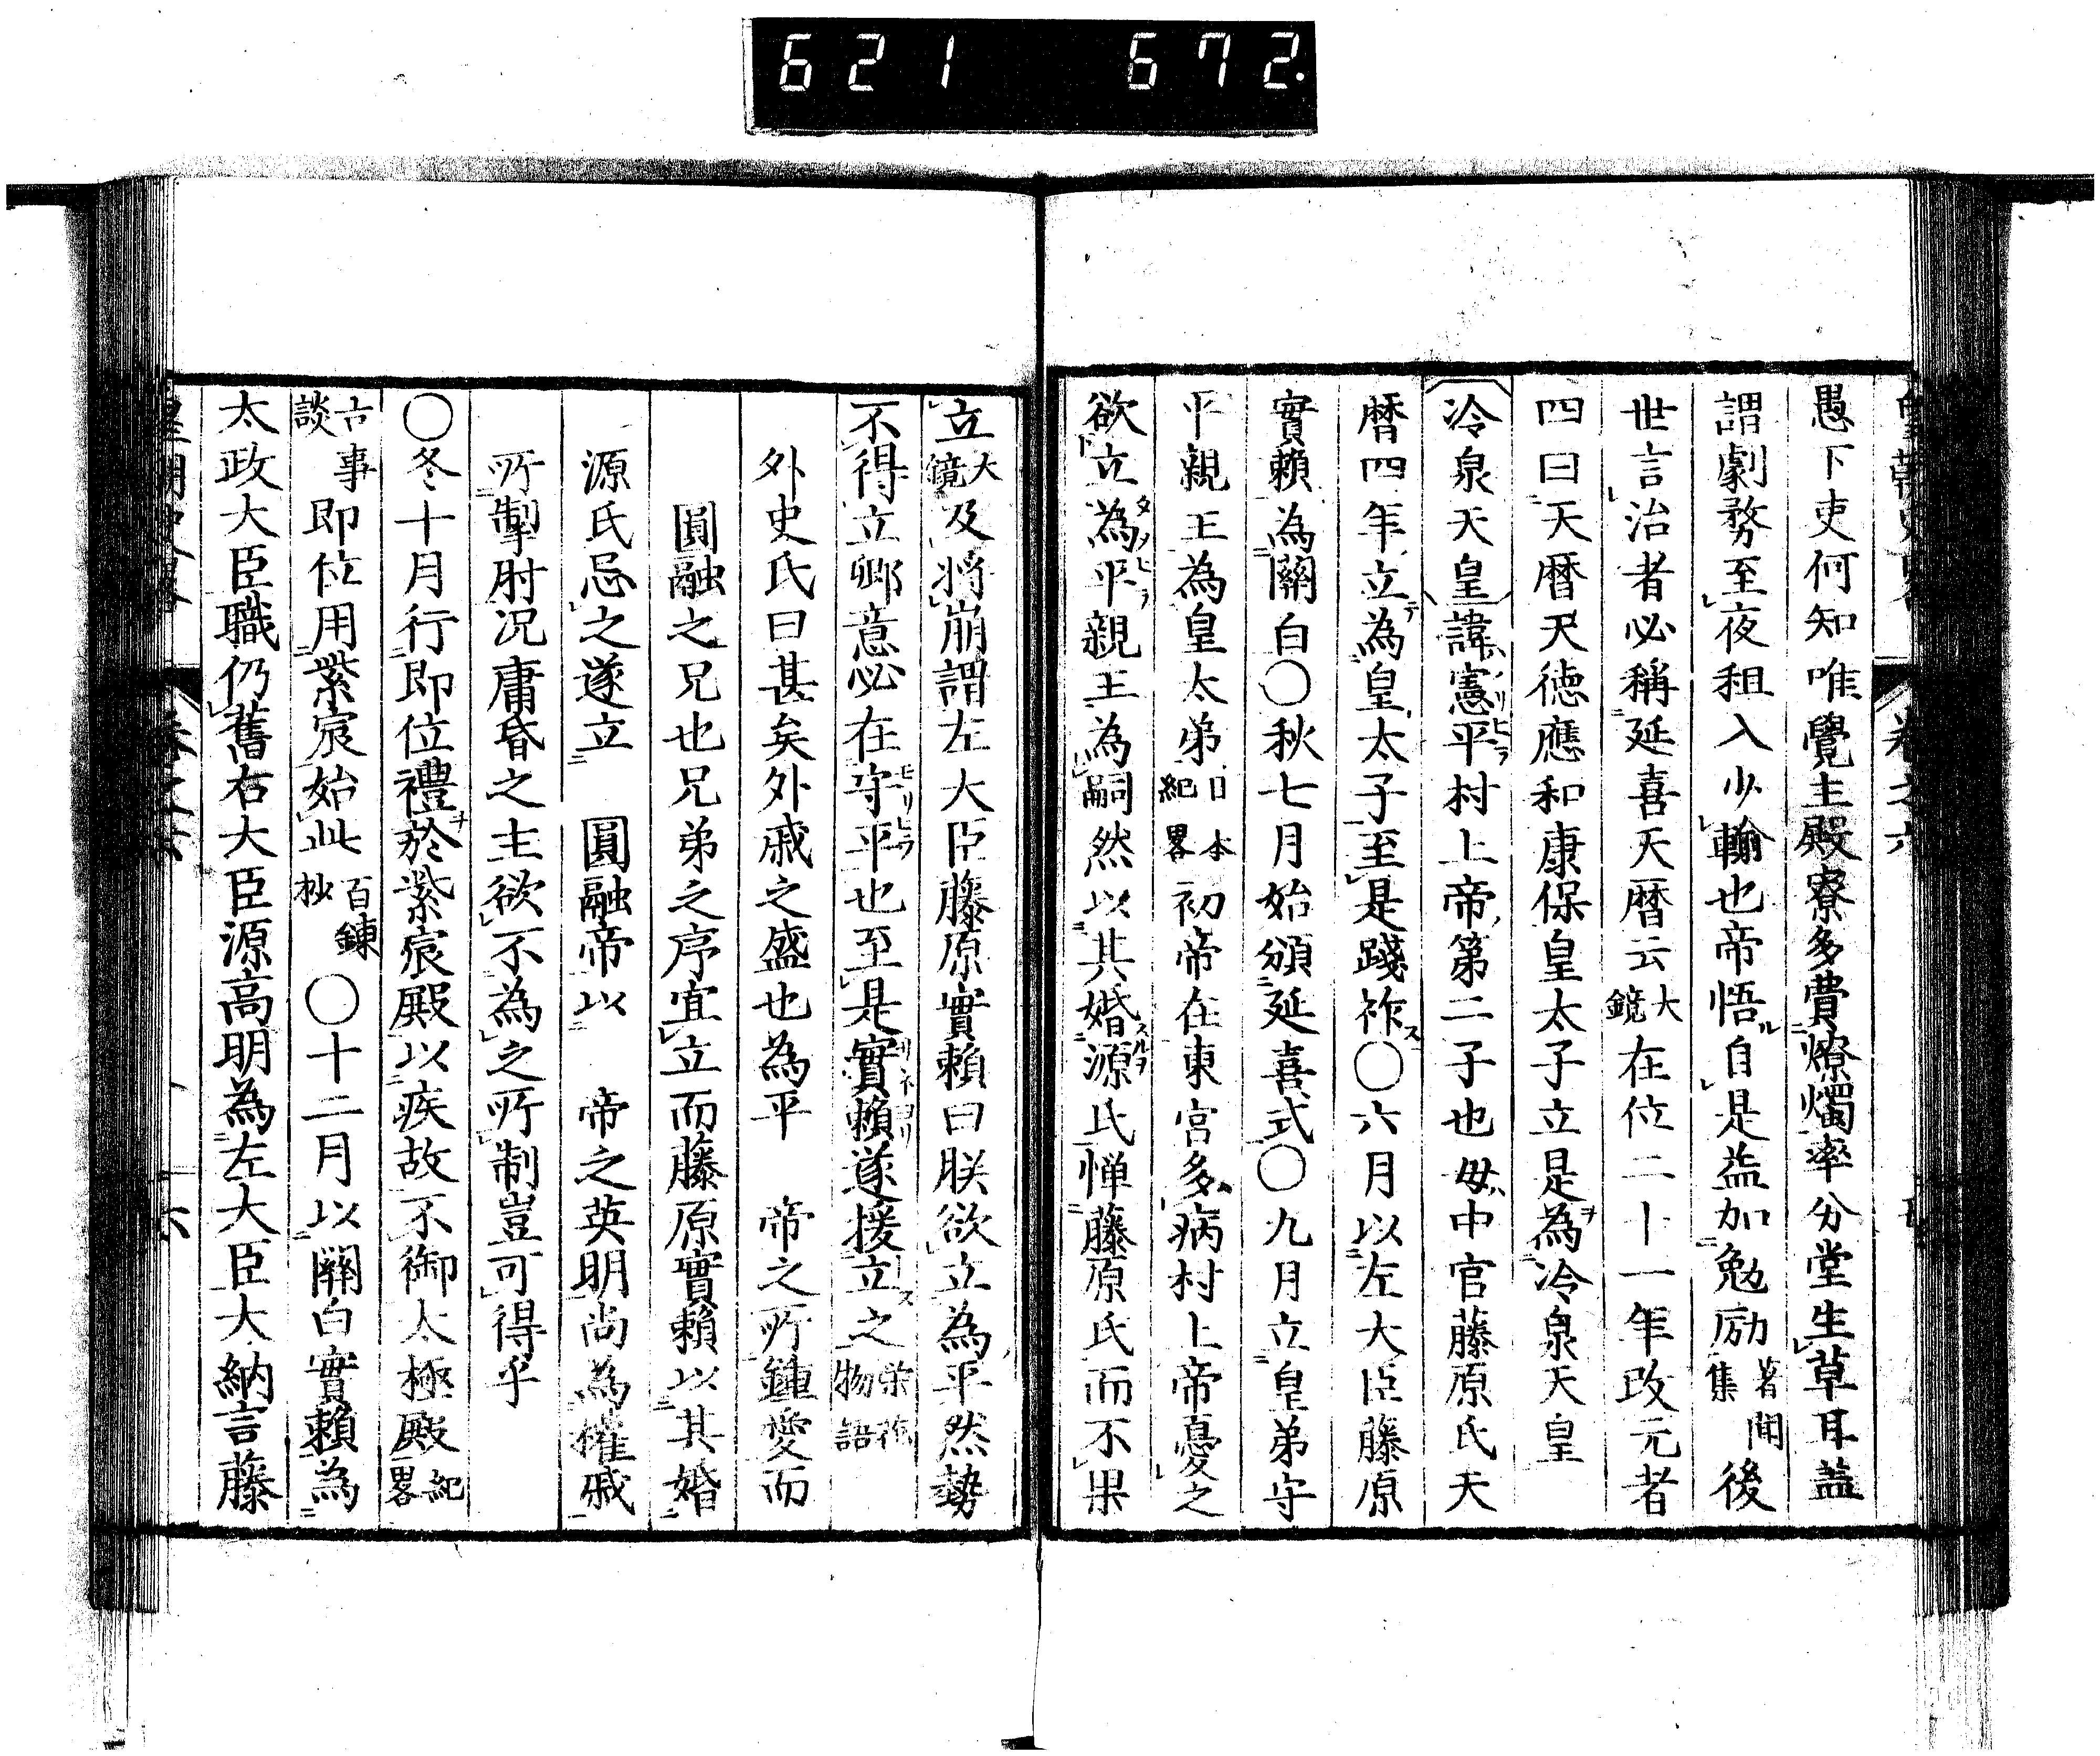 621 672.
愚下吏何知唯覺主殿寮多費燎燭率分堂生草耳蓋
謂劇務至夜租入少輸也帝悟自是益加勉励著聞集後
世言治者必稱延喜天暦云大鏡在位二十一年改元者
四曰天暦天徳應和康保皇太子立是為冷泉天皇
冷泉天皇諱憲平村上帝第二子也母中官藤原氏天
暦四年立為皇太子至是踐祚〇六月以左大臣藤原
實賴為關白〇秋七月始頒延喜式〇九月立皇弟守
平親王為皇太弟日本紀畧初帝在東宮多病村上帝憂之
欲立為平親王為嗣然以其婚源氏憚藤原氏而不果
立大鏡及將崩謂左大臣藤原實賴曰朕欲立為平然勢
不得立卿意必在守平也至是實賴遂援立之物語
外史氏曰甚矣外戚之盛也為平 帝之所鍾愛而
圓融之兄也兄弟之序宜立而藤原實賴以其婚
源氏忌之遂立 圓融帝以 帝之英明尚為權戚
所掣肘况庸昏之主欲不為之所制豈可得乎
〇冬十月行即位禮於紫宸殿以疾故不御太極殿紀畧
古事談即位用紫宸始此百錬抄〇十二月以關白實賴為
太政大臣職仍舊右大臣源高明為左大臣大納言藤